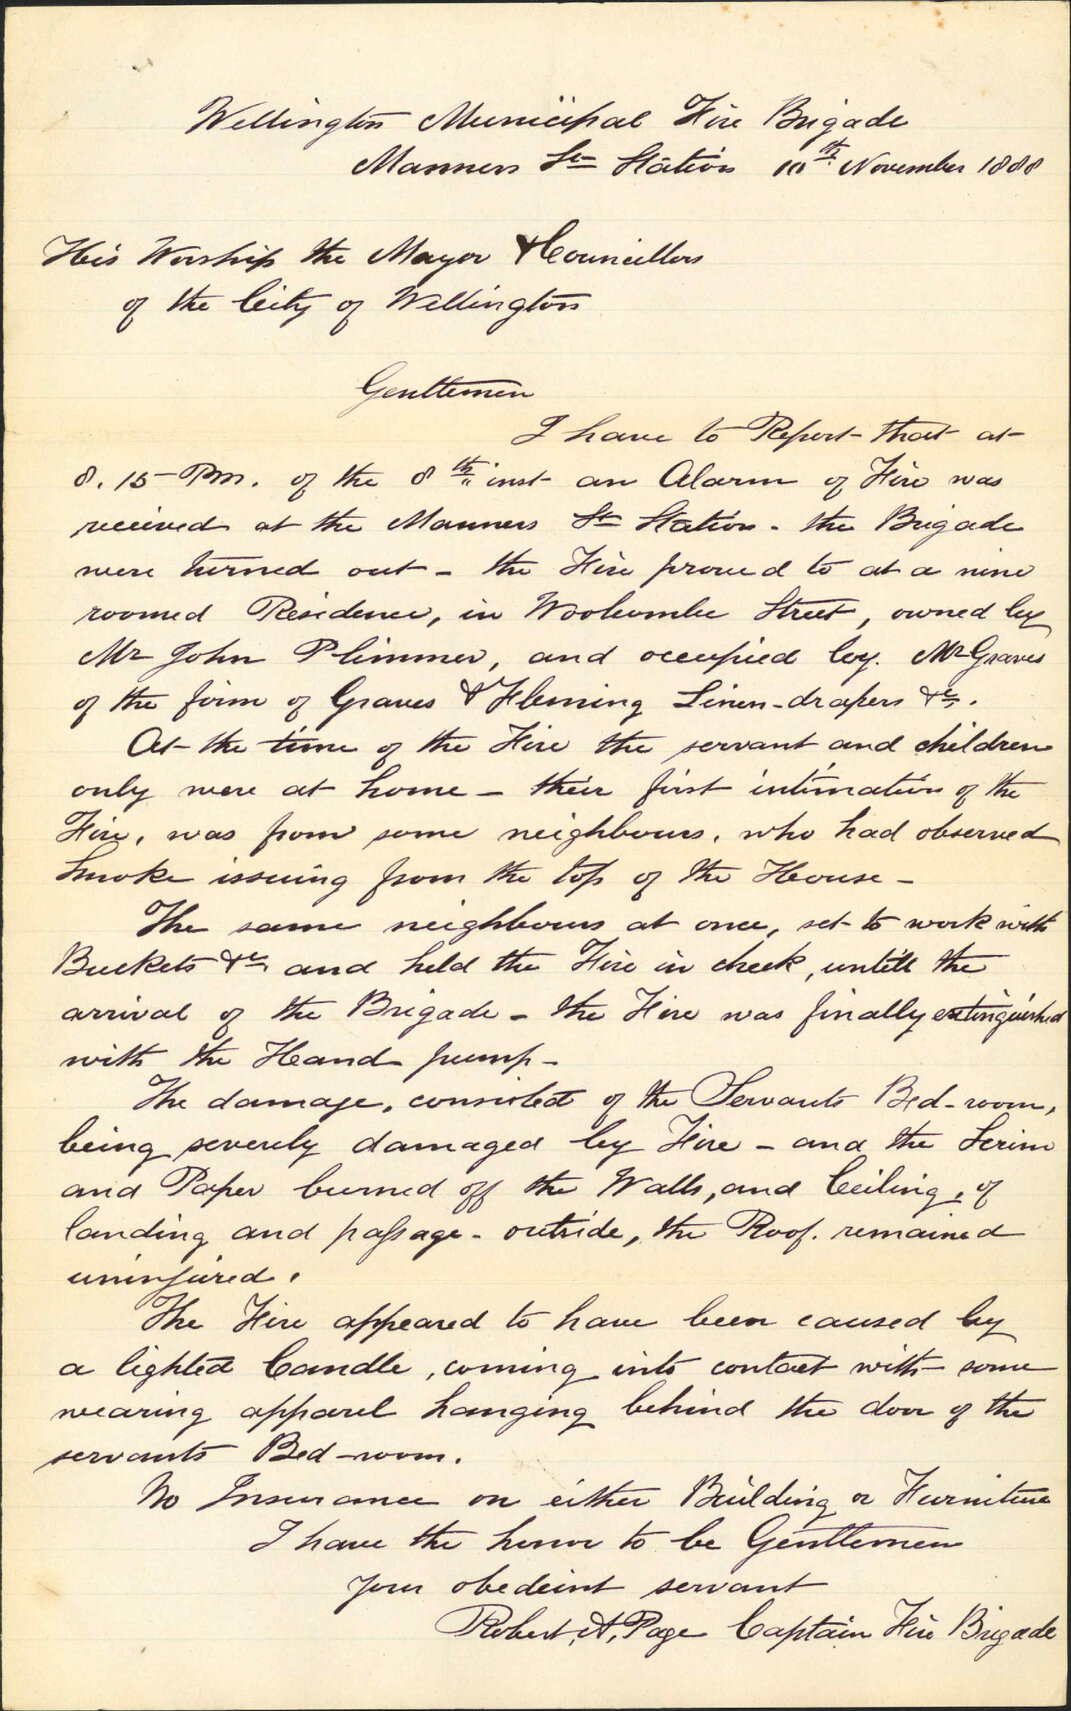 Wellington Municipal Fire Brigade
Manners St Station 10th November 1888
His Worship the Mayor & Councillors
of the City of Wellington
Gentlemen
I have to Report that at
8.15 PM. of the 8th inst an Alarm of Fire was
received at the Manners St Station - the Brigade
were turned out - the Fire proved to at a nine
roomed Residence, in Woolcombe Street, owned by
Mr John Plimmer, and occupied by. Mr Graves
of the firm of Graves & Fleming Linen-drapers &c.
At the time of the Fire the servant and children
only were at home - their first intimation of the
Fire, was from some neighbours, who had observed
Smoke issuing from the top of the House -
The same neighbours at once, set to work with
Buckets &c and held the Fire in check, untill the
arrival of the Brigade - the Fire was finally extinguished
with the Hand pump -
The damage, consisted of the Servants Bed-room,
being severely damaged by Fire - and the Scrim
and Paper burned off the Walls, and Ceiling, of
landing and passage - outside, the Roof. remained
uninjured.
The Fire appeared to have been caused by
a lighted Candle, coming into contact with some
wearing apparel hanging behind the door of the
servants Bed-room.
No Insurance on either Building or Furniture
I have the honor to be Gentlemen
your obedeint servant
Robert. A. Page Captain Fire Brigade